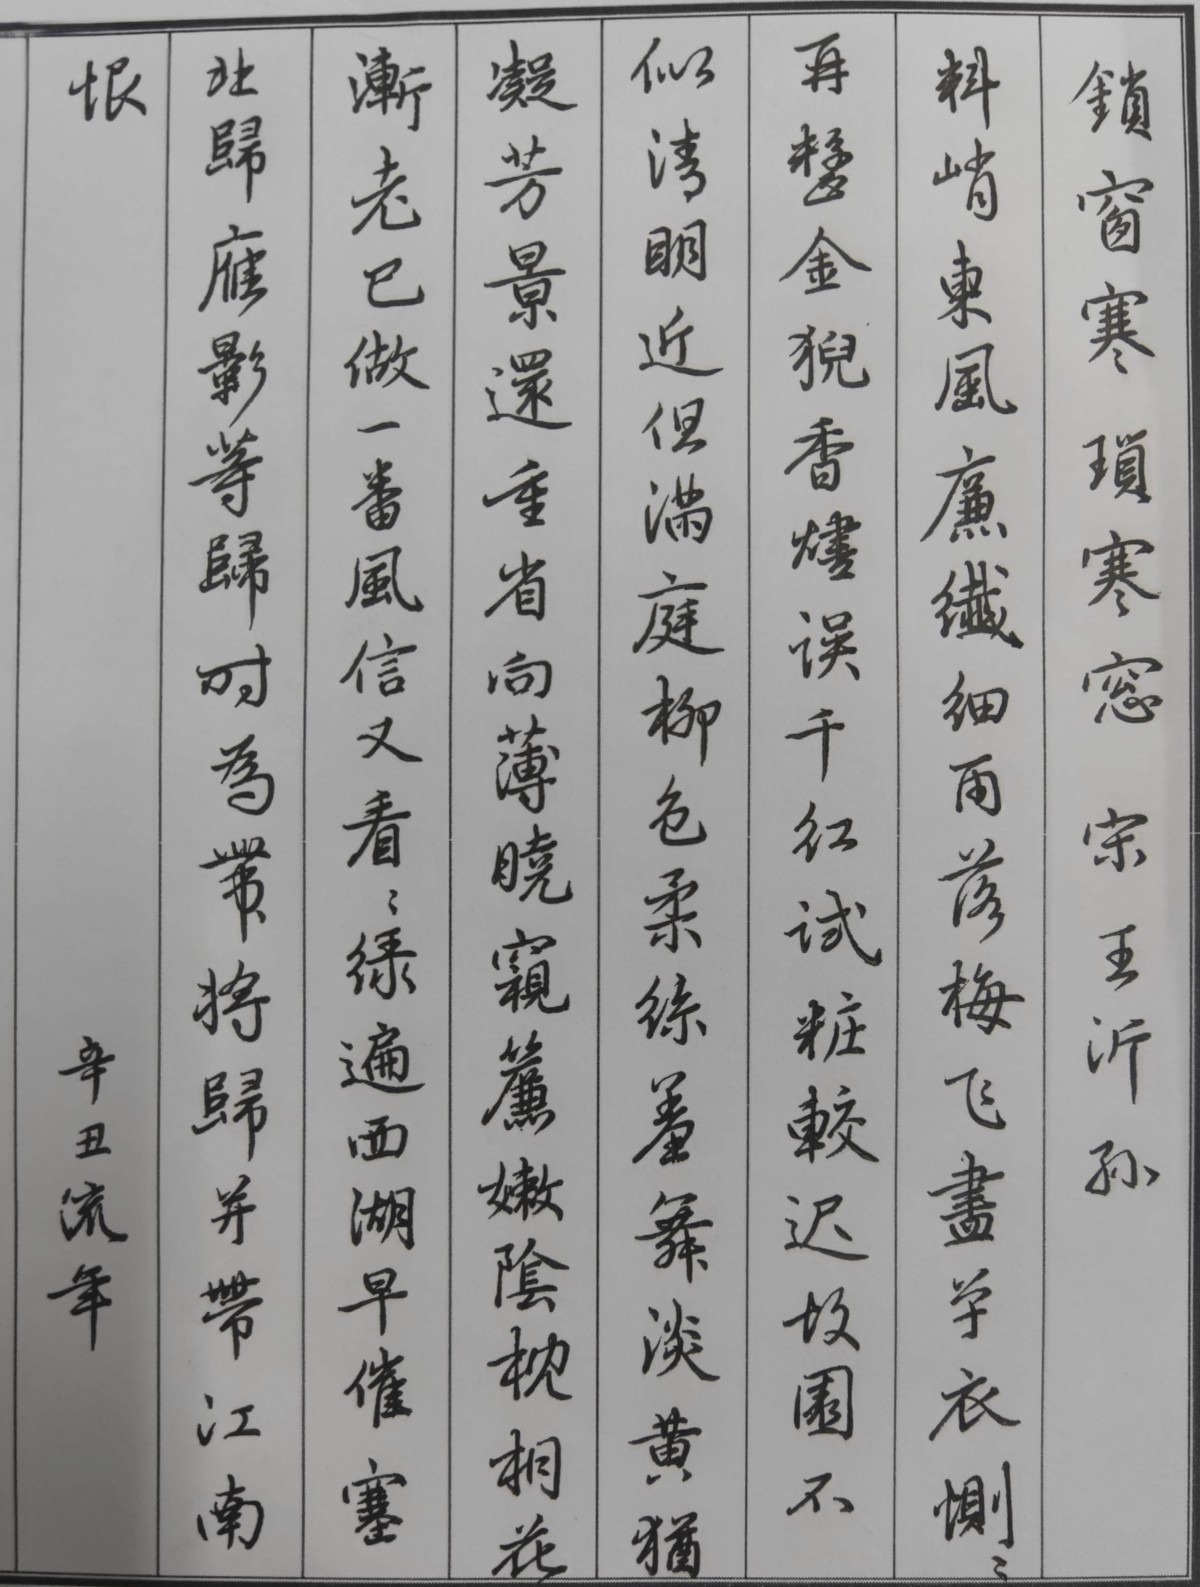 鎖窗寒 瑣寒窓 宋 王沂孙
料峭東風廉纖細雨落梅飞盡单衣惻〻
再整金猊香燼误千红试粧較迟故園不
似清明近但满庭柳色柔絲羞舞淡黄猶
凝芳景還重省向薄曉窺簾嫩陰枕桐花
漸老已做一番風信又看〻绿遍西湖早催塞
北歸雁影等歸时為帶将歸并帶江南
恨
辛丑流年